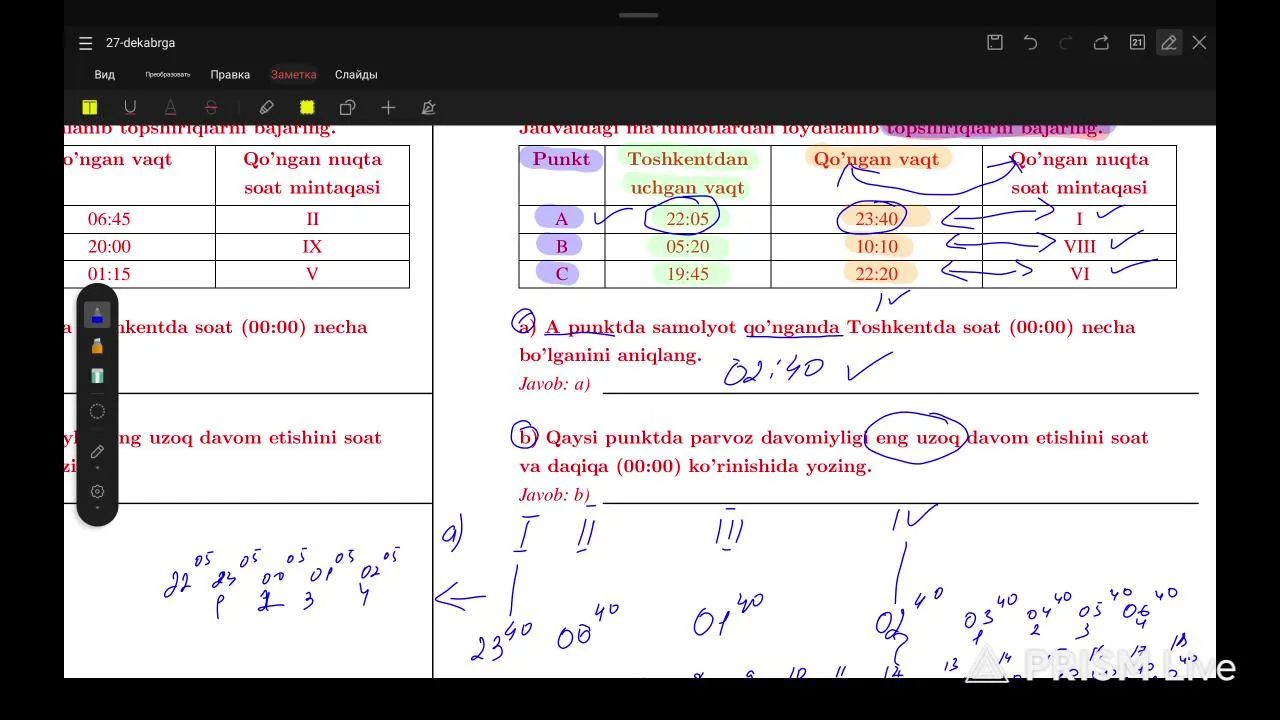 27-dekabrga
21
Вид Преобразовать Правка Заметка Слайды
alanib topshiriqlarni bajaring.
o'ngan vaqt Qo'ngan nuqta soat mintaqasi
06:45 II
20:00 IX
01:15 V
nkentda soat (00:00) necha
eng uzoq davom etishini soat
Jadvaldagi ma'lumotlardan foydalanib topshiriqlarni bajaring.
Punkt Toshkentdan uchgan vaqt Qo'ngan vaqt Qo'ngan nuqta soat mintaqasi
A 22:05 23:40 I
B 05:20 10:10 VIII
C 19:45 22:20 VI
IV
a) A punktda samolyot qo'nganda Toshkentda soat (00:00) necha
bo'lganini aniqlang.
02:40
Javob: a)
b) Qaysi punktda parvoz davomiyligi eng uzoq davom etishini soat
va daqiqa (00:00) ko'rinishida yozing.
Javob: b)
a) I II III IV
22 05 23 05 00 05 01 05 02 05
1 2 3 4
23 40 00 40 01 40 02 40 03 40 04 40 05 40 06 40
1 2 3 4
PRISM Live